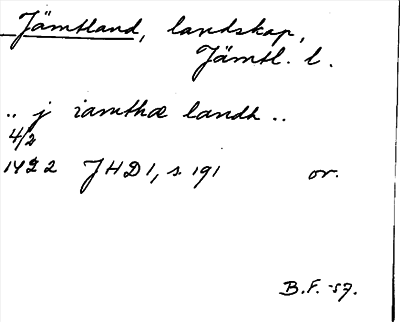 Jämtland, landskap,
Jämtl. l.
.. j iamthæ landh ..
4/2
1422 JHD 1, s 191 or.
B.F. -57.